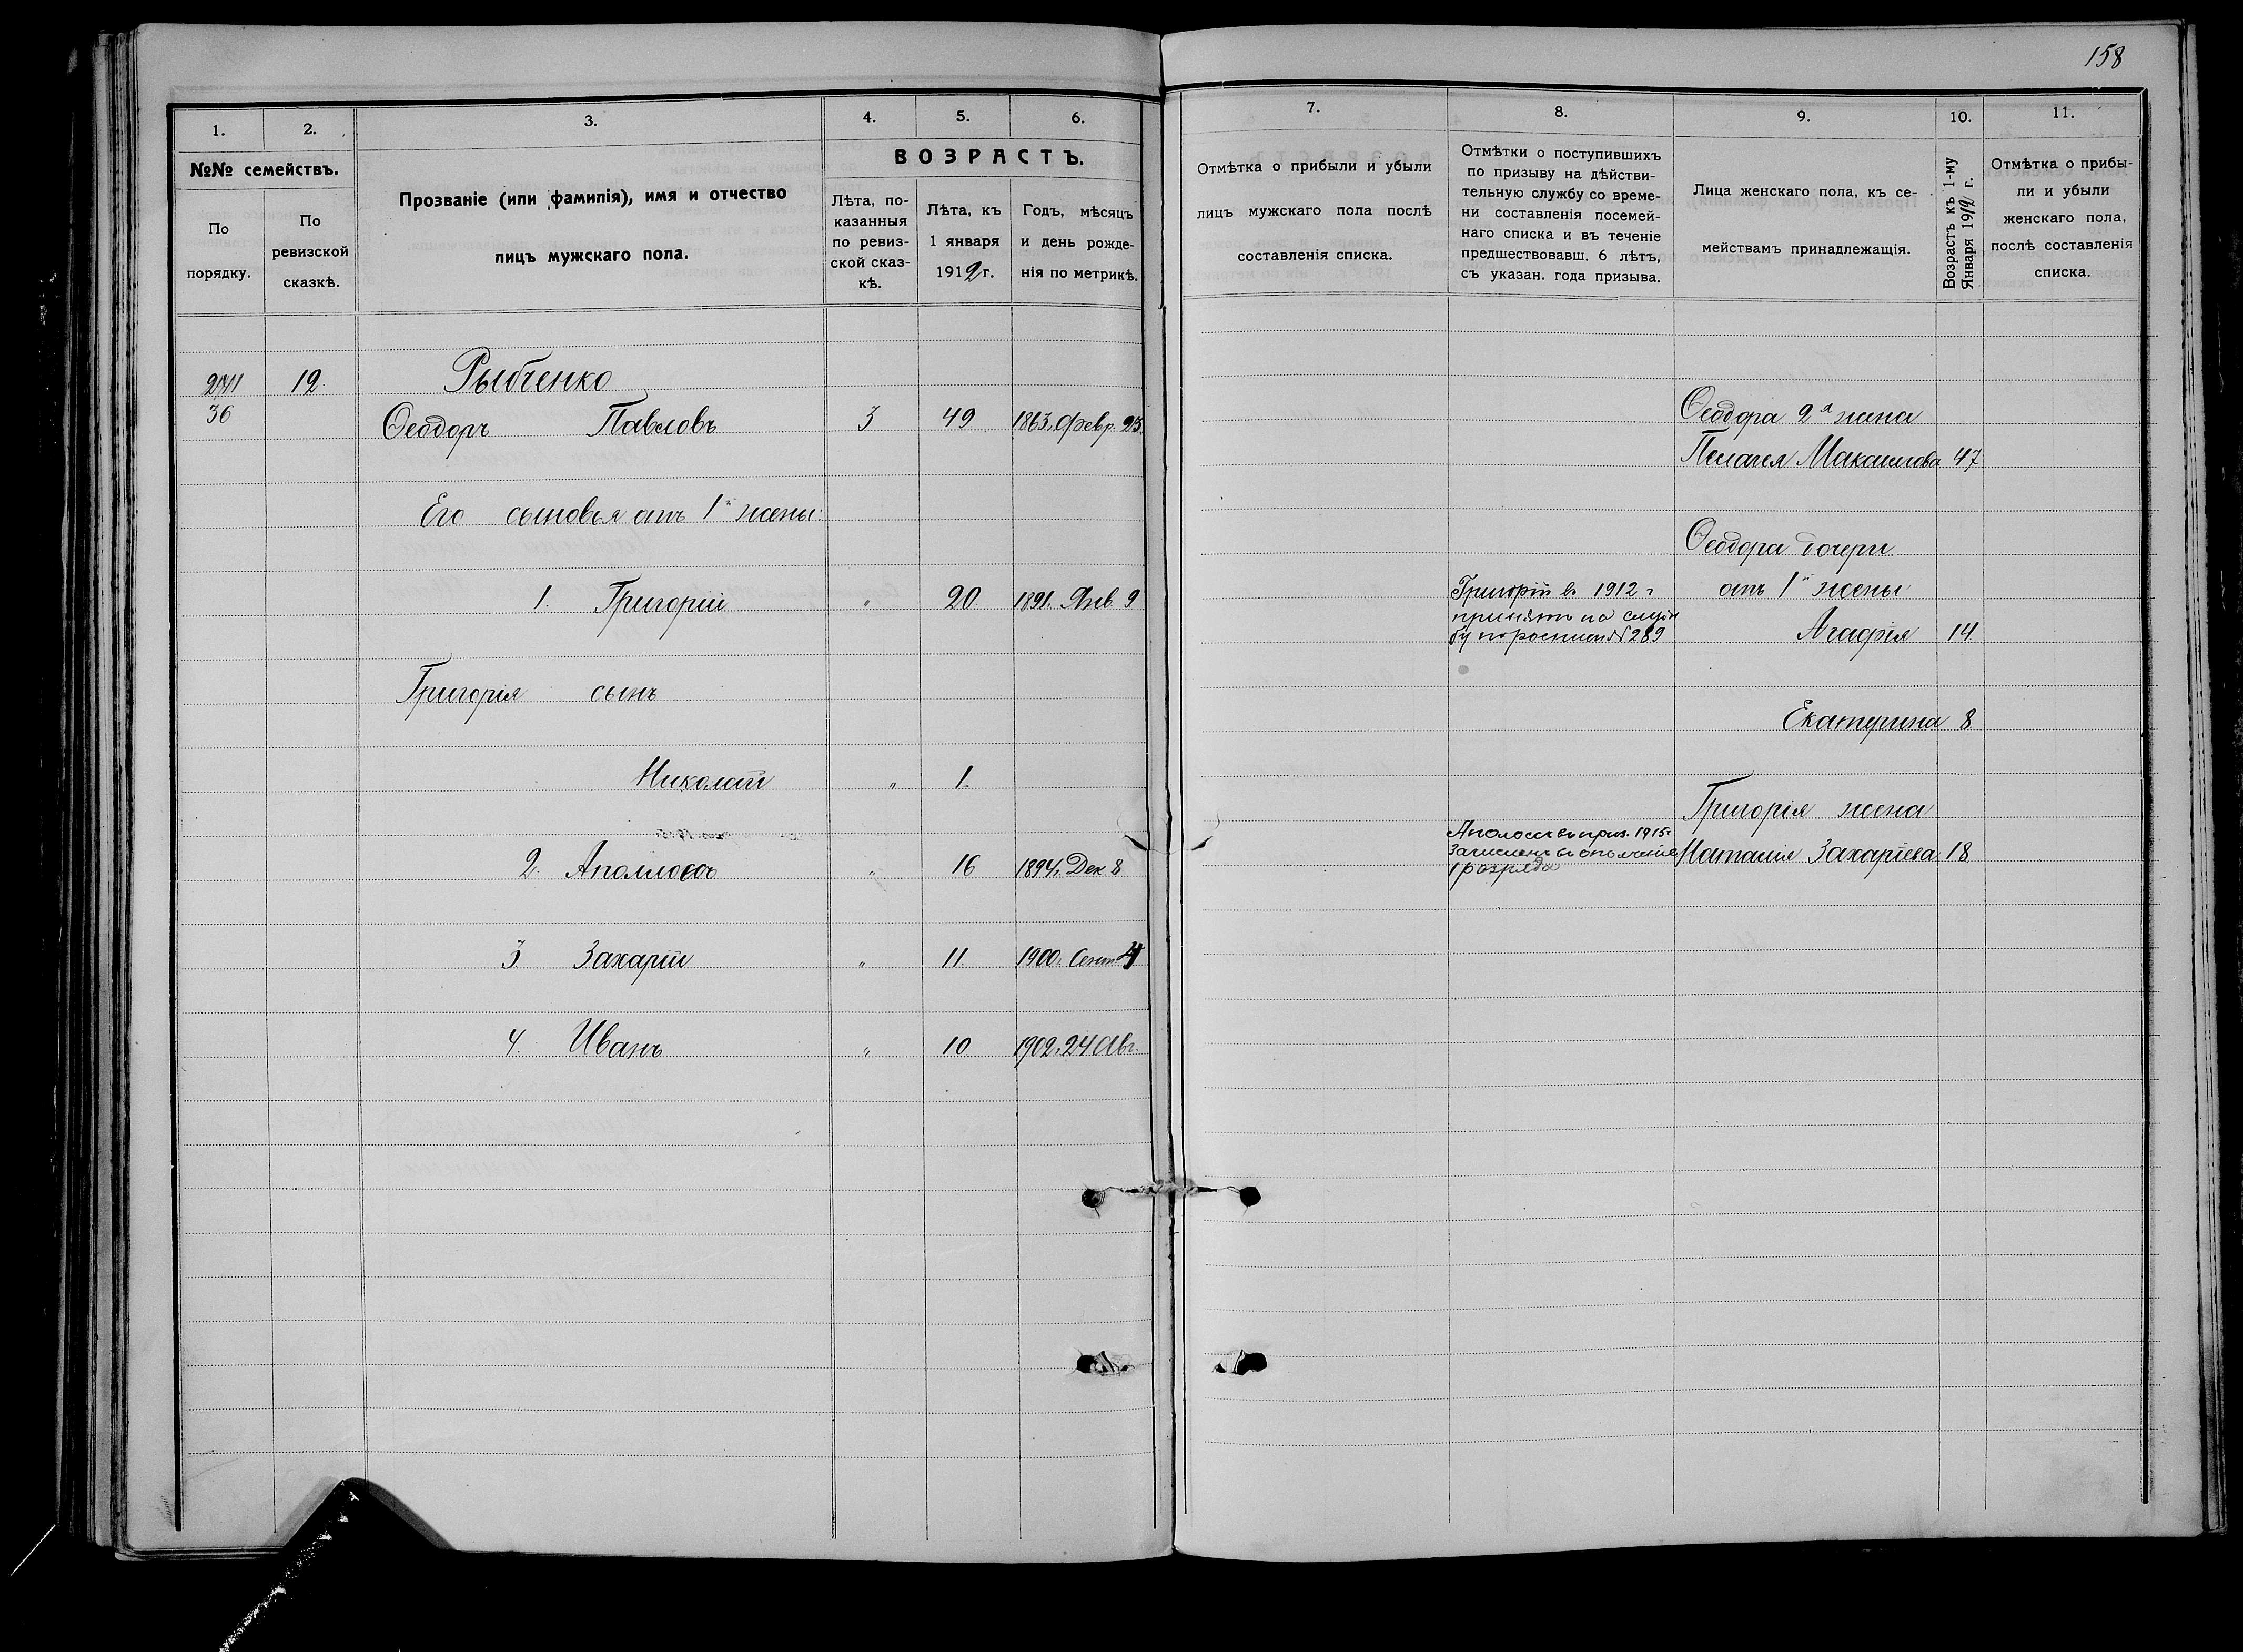 158
1.
2.
3.
4.
5.
6.
№№ семействъ.
По порядку.
По ревизской сказкѣ.
Прозваніе (или фамилія), имя и отчество
лицъ мужскаго пола.
ВОЗРАСТЪ.
Лѣта, по-
казанныя
по ревиз-
ской сказ-
кѣ.
Лѣта, къ
1 января
1912 г.
Годъ, мѣсяцъ
и день рожде-
нія по метрикѣ.
12. Рыбченко
36 Ѳеодоръ Павловъ 3 49 1863, Февр. 23
Его сыновья отъ 1й жены:
1. Григорій " 20 1891. Янв 9
Григорія сынъ
Николай " 1.
2. Аполлосъ " 16 1894, Дек 8
3 Захарій " 11. 1900, Сент 4
4. Иванъ " 10. 1902, 24 Авг.
7.
8.
9.
10.
11.
Отмѣтка о прибыли и убыли
лицъ мужскаго пола послѣ
составленія списка.
Отмѣтки о поступившихъ
по призыву на дѣйстви-
тельную службу со време-
ни составленія посемей-
наго списка и въ теченіе
предшествовавш. 6 лѣтъ,
съ указан. года призыва.
Лица женскаго пола, къ се-
мействамъ принадлежащія.
Возрастъ къ 1-му
Января 1912 г.
Отмѣтка о прибы-
ли и убыли
женскаго пола,
послѣ составленія
списка.
Ѳеодора 2я жена
Пелагея Максимова 47
Ѳеодора дочери
отъ 1й жены
Агафія 14
Екатерина 8
Григорія жена
Наталія Захаріева 18
Григорій въ 1912 г
принятъ на служ
бу по росписи № 289
Аполосъ въ приз. 1915 г
Зачисленъ въ ополченіе
1 разряда